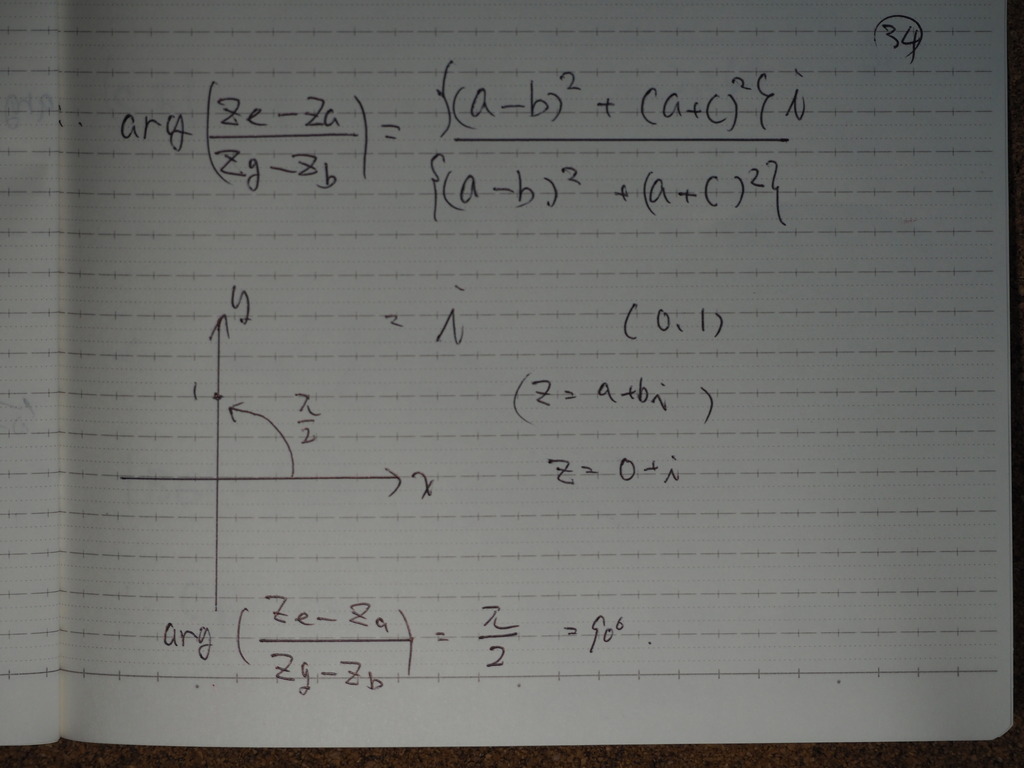 34
∴ arg((Ze-Za)/(Zg-Zb)) = {(a-b)² + (a+c)²}i/{(a-b)² + (a+c)²}
y
= i (0.1)
1 π/2 (z = a+bi)
x z = 0+i
arg((Ze-Za)/(Zg-Zb)) = π/2 = 90°.